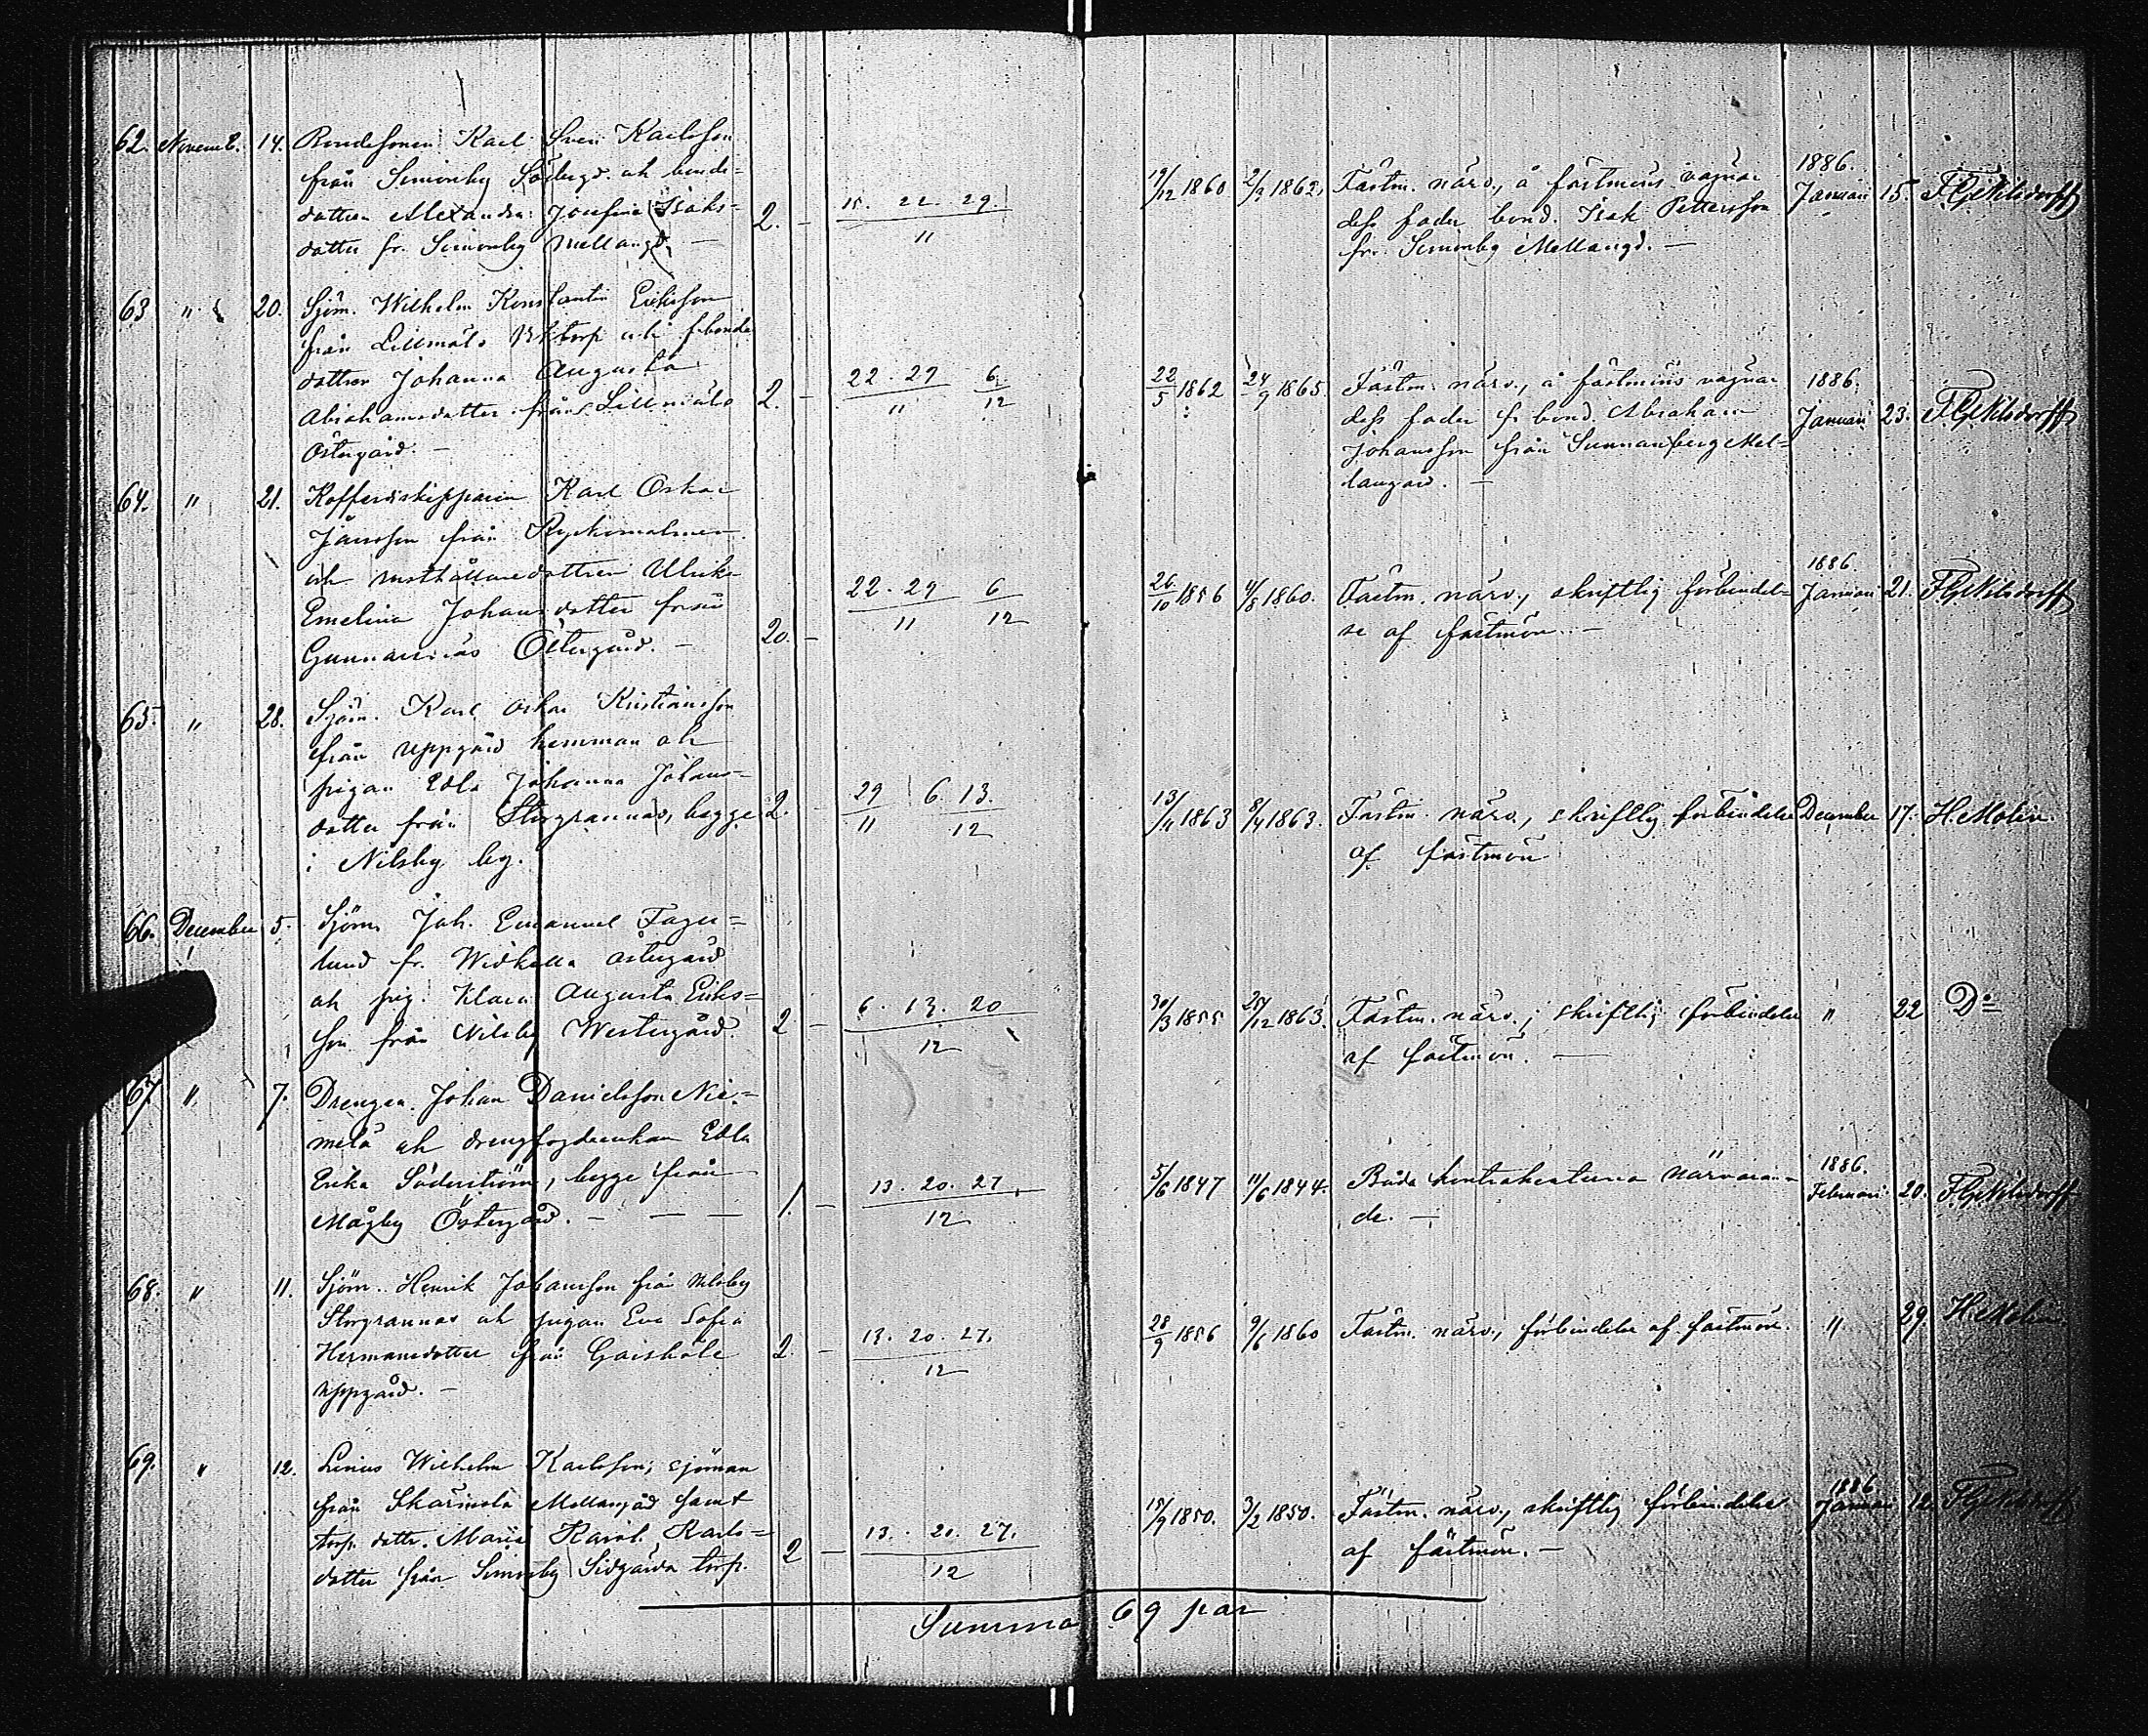 62. Novemb. 14. Bondesonen Karl Sven Karlsson
från Simonby Söderg. och bonde-
dottren Alexandra Josefina Isaks-
dotter fr. Simonby Mellangd. — 2. –
15. 22. 29. / 11
19/12 1860 2/3 1862. Fästm. närv., å fästmöns vägnar
dess fader bond. Isak Pettersson
fr. Simonby Mellangd. —
1886.
Januari 15.
63. " 20. Sjöm. Wilhelm Konstantin Eriksson
från Lillmälö torp och f. bonde
dottren Johanna Augusta
Abrahamsdotter från Lillmälö 2. –
Östergård. —
22. 29 / 11 6 / 12
22/5 1862 24/9 1865. Fästm. närv., å fästmöns vägnar
dess fader f. bond. Abraham
Johansson från Sunnanberg Mel-
langård. —
1886.
Januari 23.
64. " 21. Kofferdiskepparen Karl Oskar
Jansson från Kyrkomalmen
och rusthållaredottren Ulrika
Emelina Johansdotter från
Gunnarsnäs Östergård. — 20. –
22. 29 / 11 6 / 12
26/10 1856 4/8 1860. Fästm. närv., skriftlig förbindel-
se af fästmön. —
1886.
Januari 21.
65. " 28. Sjöm. Karl Oskar Kristiansson
från Uppgård hemman och
pigan Edla Johanna Johans-
dotter från Storgrannas, begge 2. –
i Nilsby by.
29 / 11 6. 13. / 12
13/11 1863 8/4 1863. Fästm. närv., skriftlig förbindelse
af fästmön
December 17. H. Molin.
66. December 5. Sjöm. Joh. Emanuel Fager-
lund fr. Widkulla Östergård
och pig. Klara Augusta Eriks-
son från Nilsby Westergård. 2 –
6. 13. 20 / 12
30/3 1855 27/12 1863. Fästm. närv.; skriftlig förbindelse
af fästmön. —
" 22 D:o
67 " 7. Drengen Johan Danielsson Nie-
melä och drengfogdeenkan Edla
Erika Söderström, begge från
Mågby Östergård. — — — 1. –
13. 20. 27. / 12
5/6 1847 11/6 1844. Båda kontrahenterna närvaran-
de. —
1886.
Februari 20.
68. " 11. Sjöm. Henrik Johansson från Nilsby
Storgrannas och pigan Eva Sofia
Hermansdotter från Gaishåle 2. –
Uppgård. —
13. 20. 27. / 12
28/9 1856 9/6 1860 Fästm. närv., förbindelse af fästmön.
" 29 H. Molin
69. " 12. Linus Wilhelm Karlsson, sjöman
från Skärmola Mellangård samt
torp. dottr. Maria Karol. Karls-
dotter från Simonby Sidgårda torp. 2 –
13. 20. 27. / 12
15/9 1850. 3/2 1850. Fästm. närv., skriftlig förbindelse
af fästmön. —
1886
Januari 12.
Summa 69 par